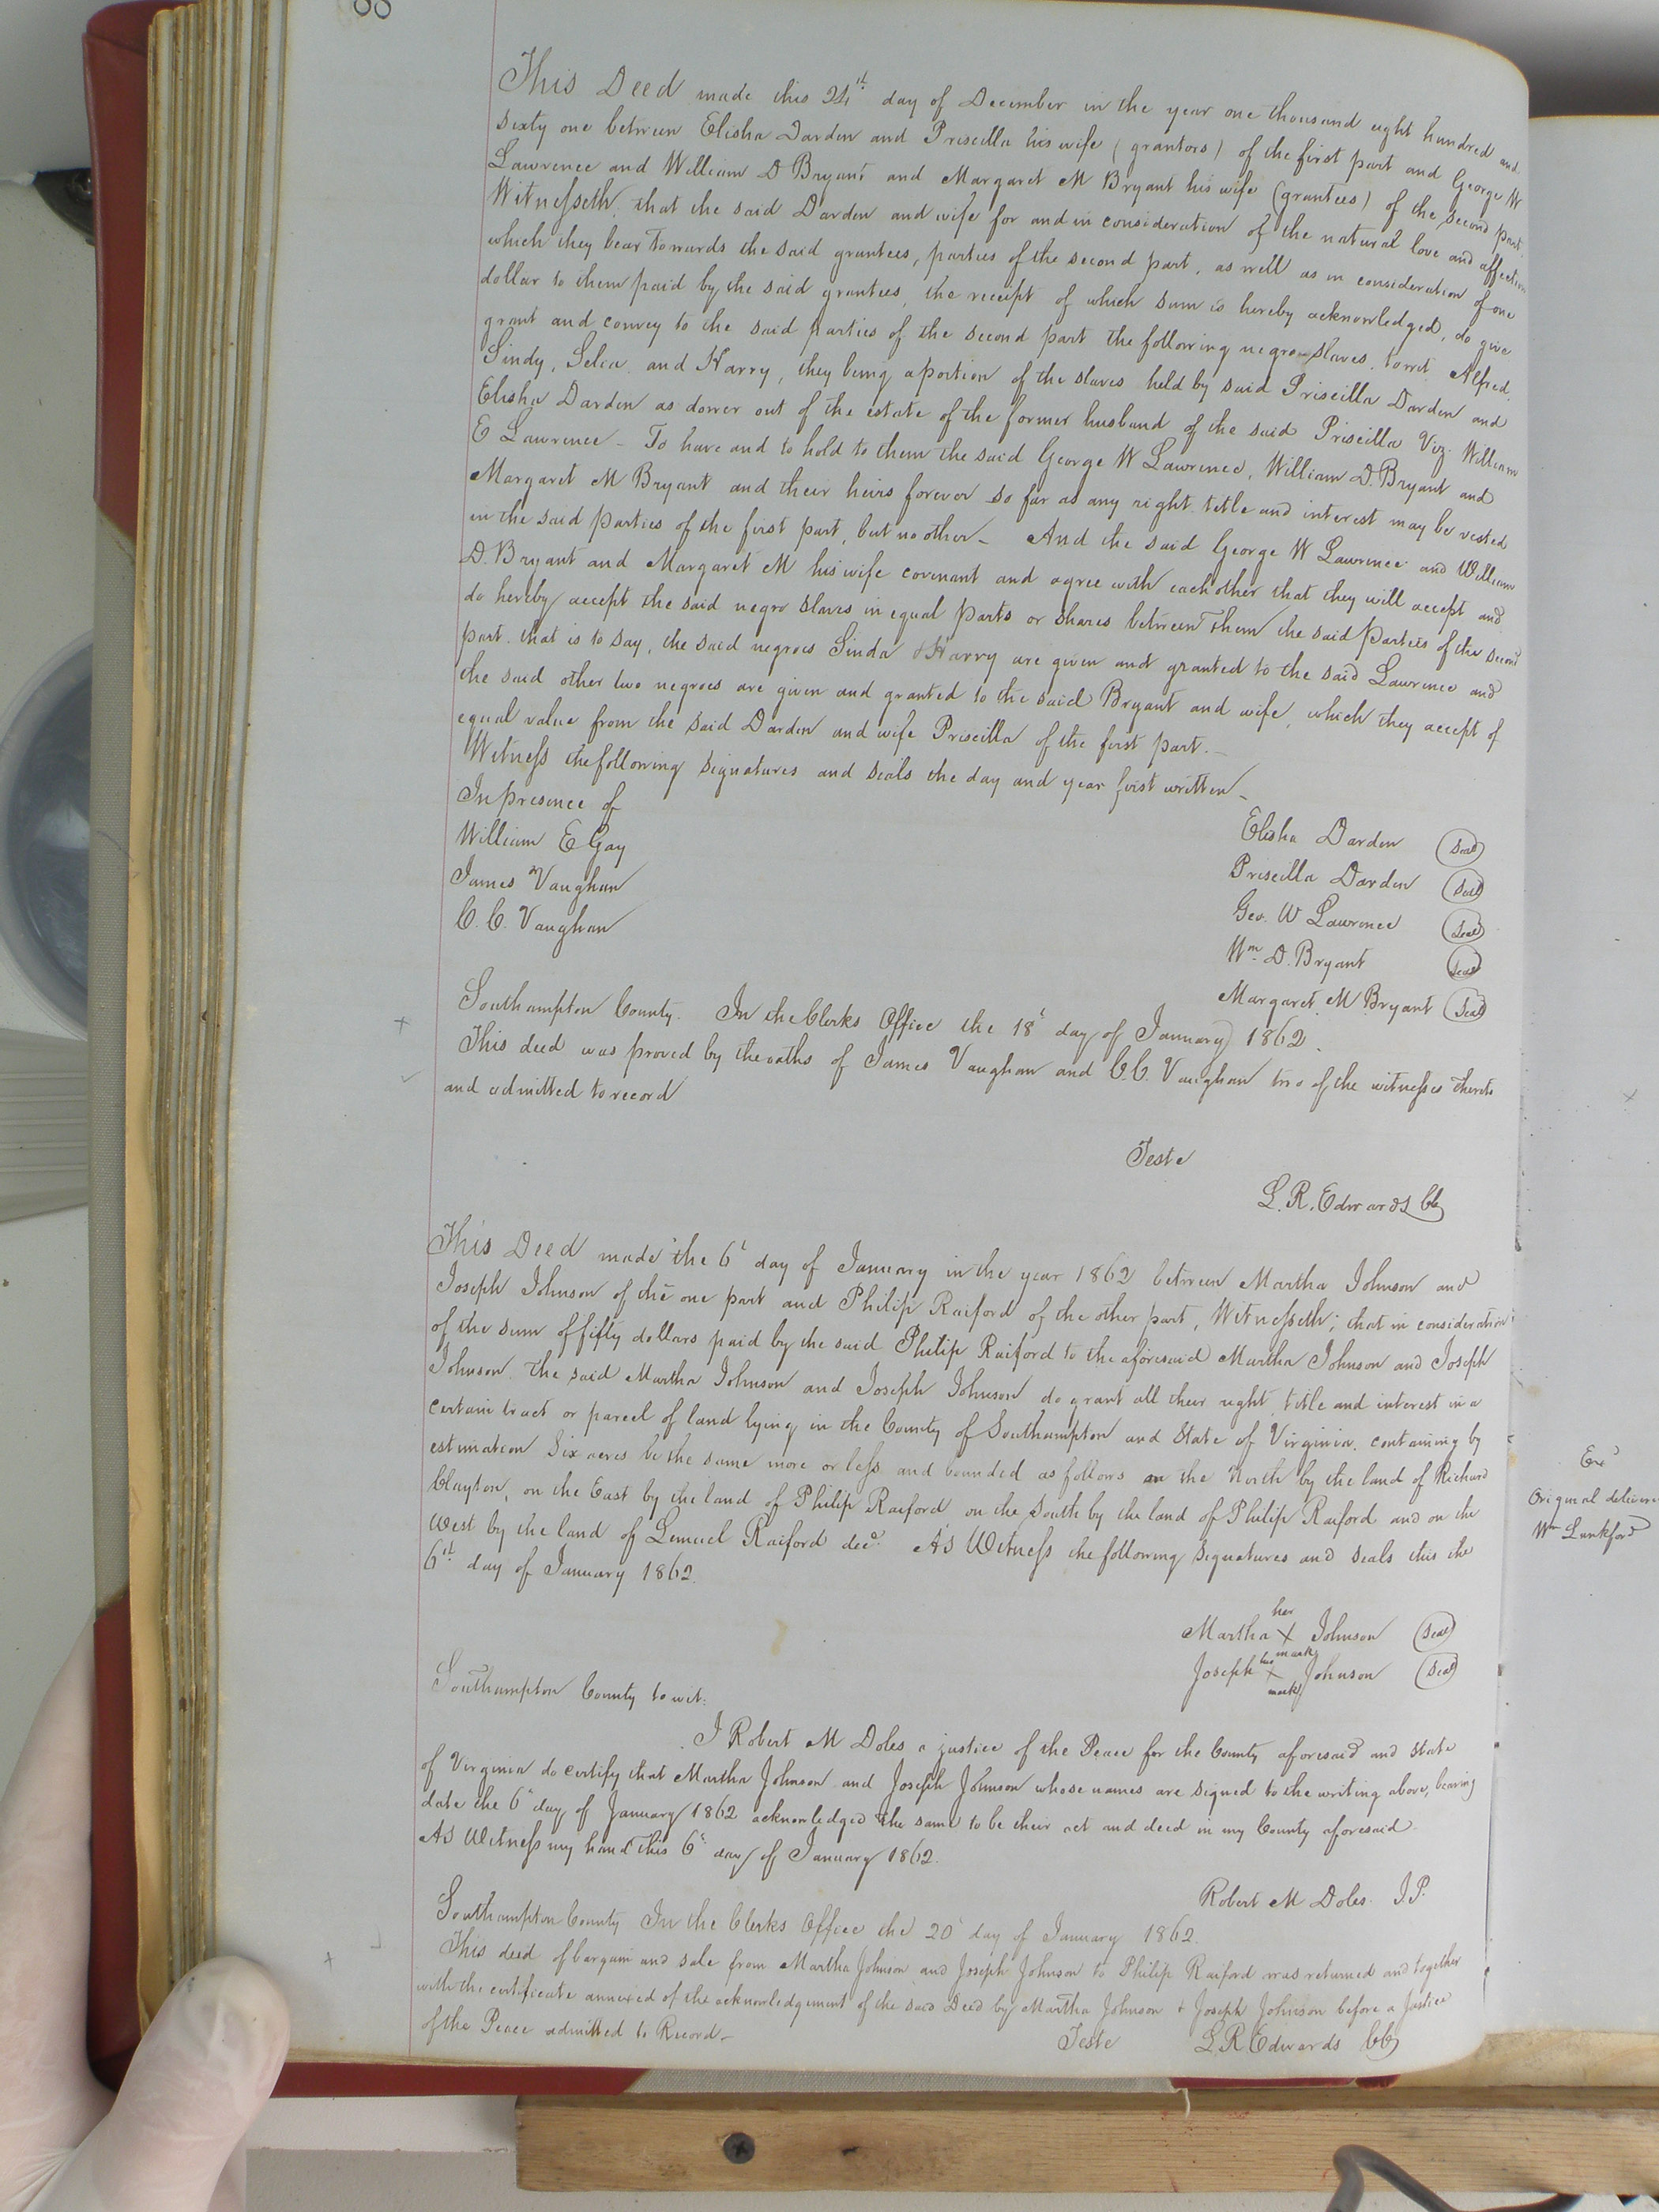 This Deed made this 24th day of December in the year one thousand eight hundred and
sixty one between Elisha Darden and Priscilla his wife (grantors) of the first part and George W
Lawrence and William D Bryant and Margaret M Bryant his wife (grantees) of the second part.
Witnesseth, that the said Darden and wife for and in consideration of the natural love and affection
which they bear towards the said grantees, parties of the second part, as well as in consideration of one
dollar to them paid by the said grantees, the receipt of which sum is hereby acknowledged, do give
grant and convey to the said parties of the second part the following negro slaves, towit, Alfred,
Sindy, Selia, and Harry, they being a portion of the slaves held by said Priscilla Darden and
Elisha Darden as dower out of the estate of the former husband of the said Priscilla Viz. William
E Lawrence – To have and to hold to them the said George W Lawrence, William D. Bryant and
Margaret M Bryant and their heirs forever so far as any right title and interest may be vested
in the said parties of the first part, but no other – And the said George W Lawrence and William
D. Bryant and Margaret M his wife covenant and agree with each other that they will accept and
do hereby accept the said negro slaves in equal parts or shares between them the said parties of the second
part. that is to say, the said negroes Sinda & Harry are given and granted to the said Lawrence and
the said other two negroes are given and granted to the said Bryant and wife, which they accept of
equal value from the said Darden and wife Priscilla of the first part. –
Witness the following signatures and seals the day and year first written –
In presence of
William E Gay
James Vaughan
C. C. Vaughan
Elisha Darden (Seal)
Priscilla Darden (Seal)
Geo. W Lawrence (Seal)
Wm D. Bryant (Seal)
Margaret M Bryant (Seal)
Southampton County. In the Clerks Office the 18t day of January 1862.
This deed was proved by the oaths of James Vaughan and C.C. Vaughan two of the witnesses thereto
and admitted to record
Teste
L. R. Edwards Clk
This Deed made the 6t day of January in the year 1862 between Martha Johnson and
Joseph Johnson of the one part and Philip Raiford of the other part, Witnesseth; that in consideration
of the sum of fifty dollars paid by the said Philip Raiford to the aforesaid Martha Johnson and Joseph
Johnson. The said Martha Johnson and Joseph Johnson do grant all their right, title and interest in a
certain tract or parcel of land lying in the County of Southampton and State of Virginia, containing by
estimation Six acres be the same more or less and bounded as follows on the North by the land of Richard
Clayton, on the East by the land of Philip Raiford on the South by the land of Philip Raiford and on the
West by the land of Lemuel Raiford decd. As Witness the following signatures and seals this the
6th day of January 1862.
Martha her X mark Johnson (Seal)
Joseph his X mark Johnson (Seal)
Southampton County to wit:
I Robert M Doles a justice of the Peace for the County aforesaid and State
of Virginia do certify that Martha Johnson and Joseph Johnson whose names are signed to the writing above, bearing
date the 6t day of January 1862 acknowledged the same to be their act and deed in my County aforesaid.
As Witness my hand this 6t day of January 1862.
Robert M Doles J.P.
Southampton County In the Clerks Office the 20t day of January 1862.
This deed of bargain and sale from Martha Johnson and Joseph Johnson to Philip Raiford was returned and together
with the certificate annexed of the acknowledgement of the said Deed by Martha Johnson & Joseph Johnson before a Justice
of the Peace admitted to Record –
Teste L. R Edwards Clk
Exd
Original deliver
Wm Lankford